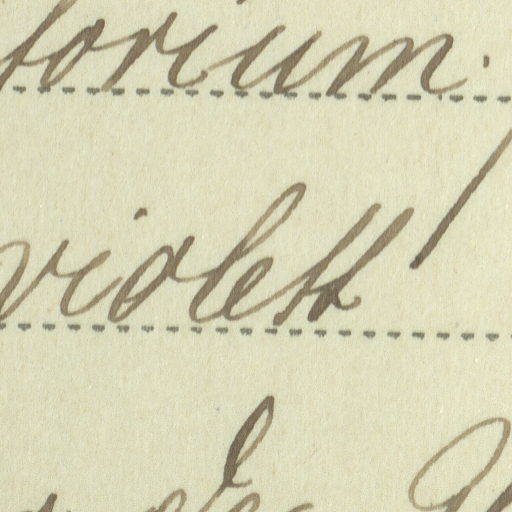 torium.
violett!